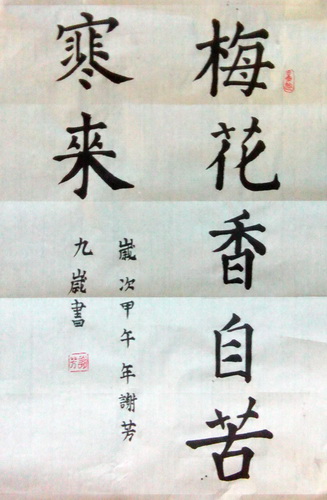 梅花香自苦
寒來
歲次甲午年謝芳
九歲書